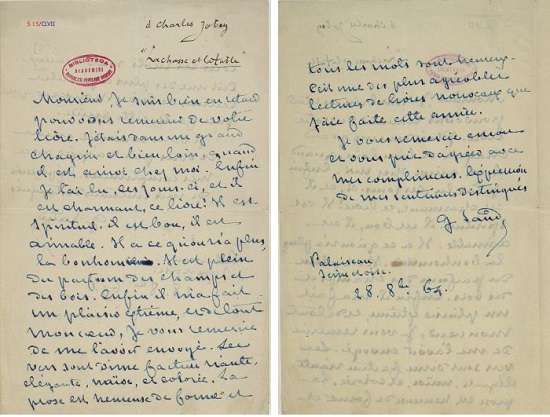 S 15/CLVII
à Charles Jobey
"La chasse et la table"
BIBLIOTECA
ACADEMIEI
Monsieur, Je suis bien en retard
pour vous remercier de votre
livre. J'étais dans un grand
chagrin et bien loin, quand
il est arrivé chez moi. Enfin
Je l'ai lu, ces jours-ci, et il
est charmant, ce livre! Il est
spirituel, il est bon, il est
aimable. Il a ce qu'on n'a plus
la bonhomie. Il est plein
du parfum des champs et
des bois. Enfin il m'a fait
un plaisir extrême, et de tout
mon cœur, Je vous remercie
de me l'avoir envoyé. Les
vers sont d'une facture riante,
élégante, naïve, et colorée. La
prose est heureuse de forme et
à Charles Jobey
tous les mots sont heureux.
C'est une des plus agréables
lectures de livres nouveaux que
j'aie faite cette année.
Je vous remercie encore
et vous prie d'agréer avec
mes compliments, l'expression
de mes sentimens distingués
G Sand
Palaiseau
Seine et oise.
28. 8bre 64.